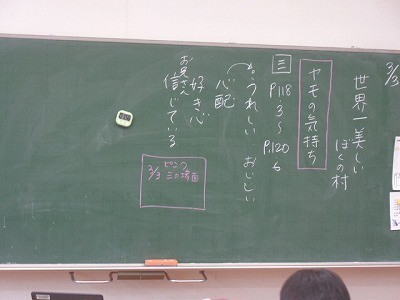 3/3
世界一美しい
ぼくの村
ヤモの気持ち
三 P118 3〜P.120 6
うれしい おいしい
心配
好き心
お兄さん
信じている
ピンク
三の場面